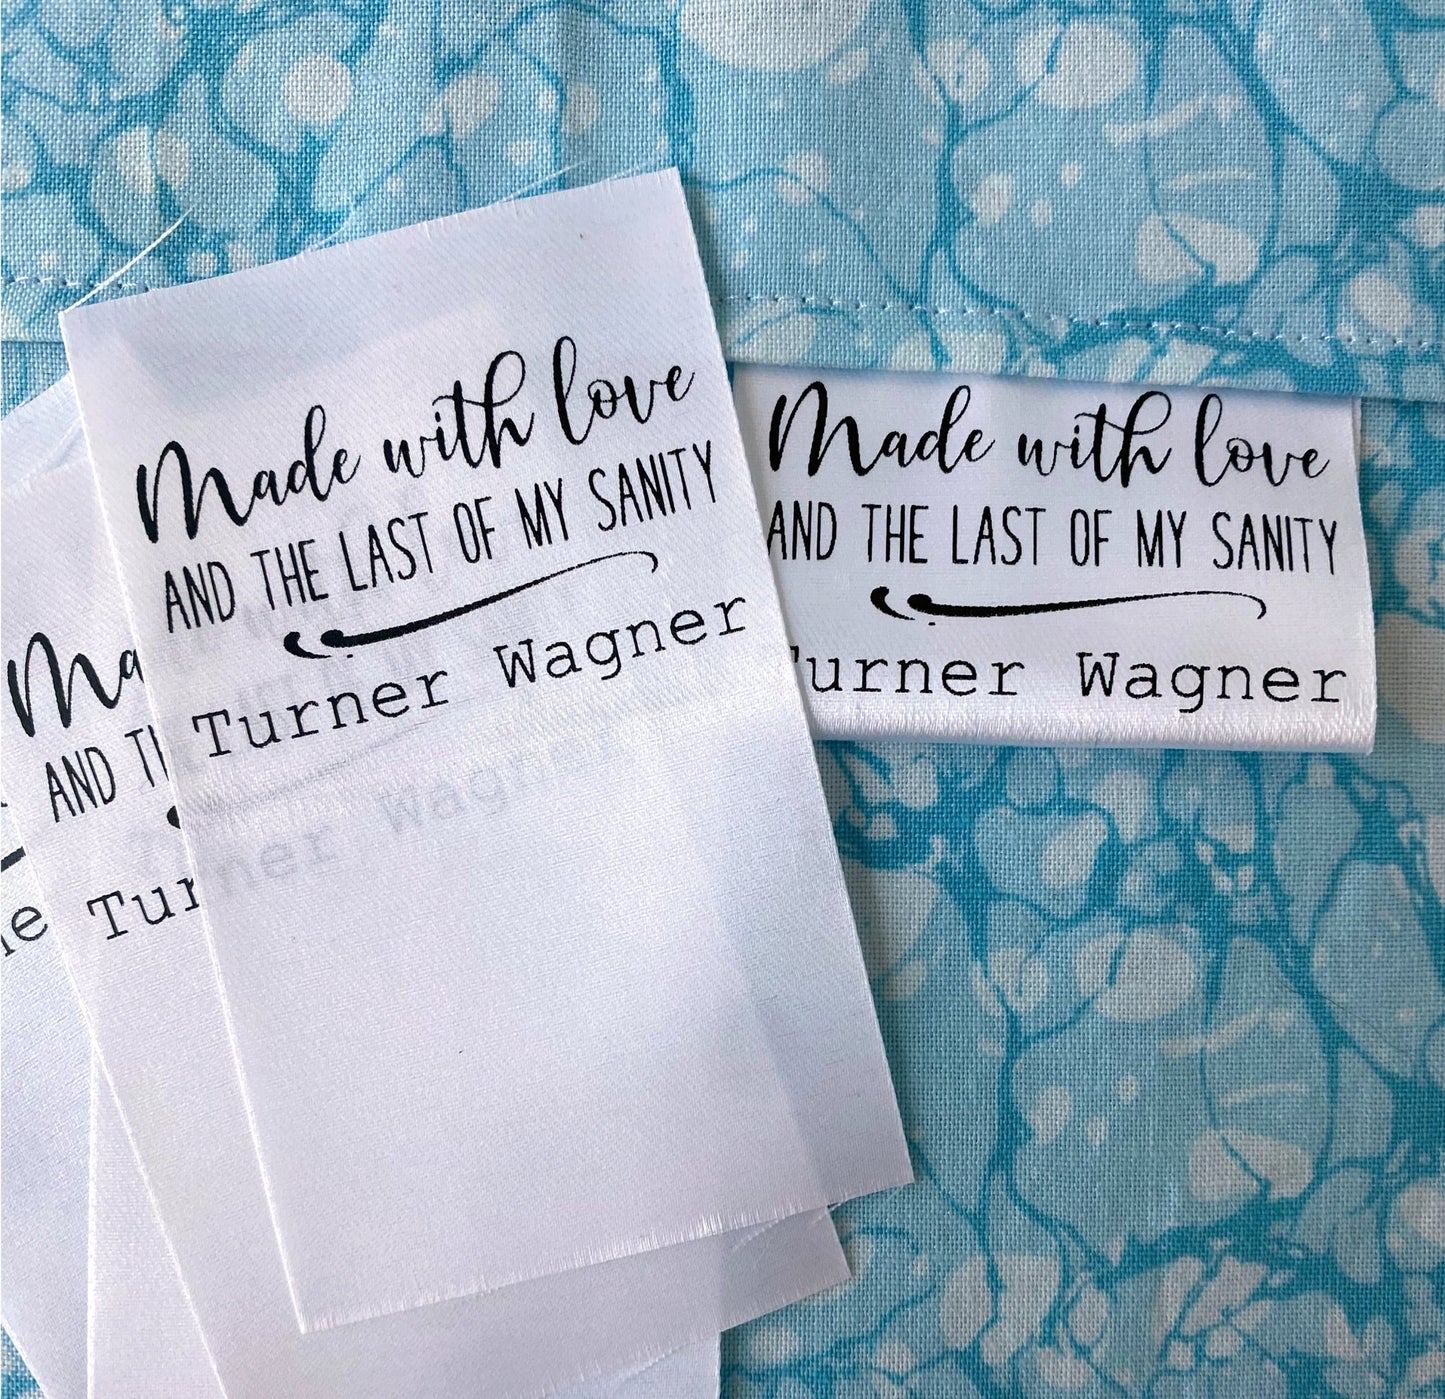 Made with love
AND THE LAST OF MY SANITY
Turner Wagner
Made with love
AND THE LAST OF MY SANITY
Turner Wagner
Ma
AND TH
Turner Wagner